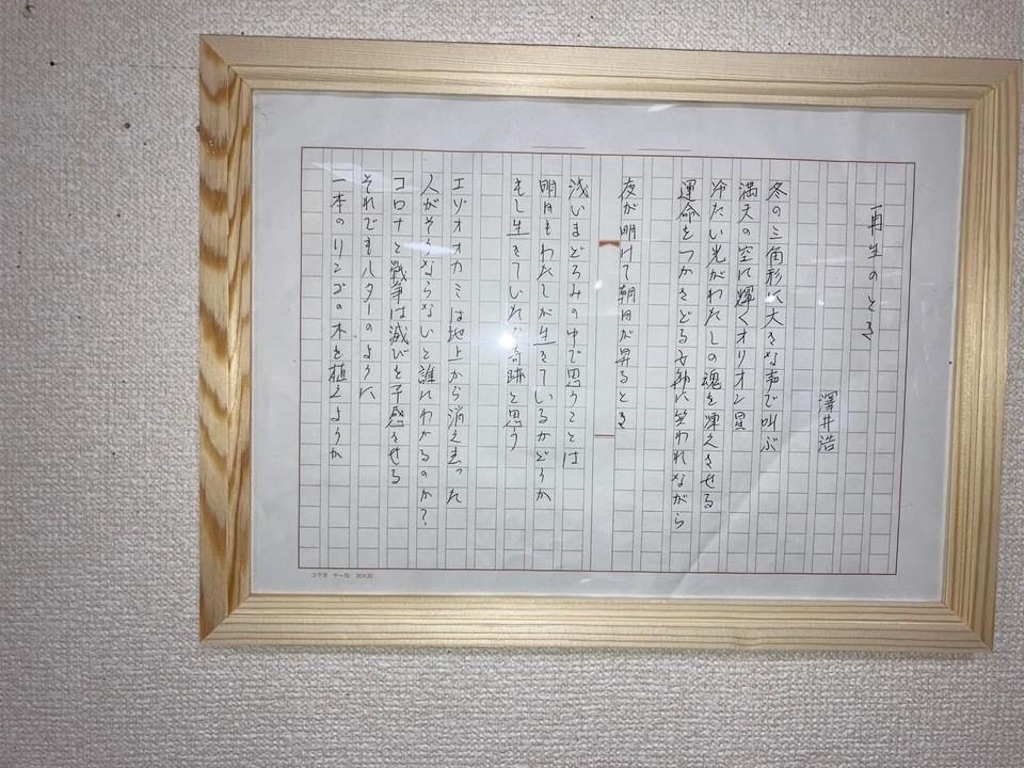 再生のとき
澤井浩
冬の三角形に大きな声で叫ぶ
満天の空に輝くオリオン星
冷たい光がわたしの魂を凍えさせる
運命をつかさどる女神に笑われながら
夜が明けて朝日が昇るとき
浅いまどろみの中で思うことは
明日もわたしが生きているかどうか
もし生きていれば奇跡と思う
エゾオオカミは地上から消え去った
人がそうならないと誰にわかるのか?
コロナと戦争は滅びを予感させる
それでもルターのように
一本のリンゴの木を植えようか
コクヨ ケー20 20×20